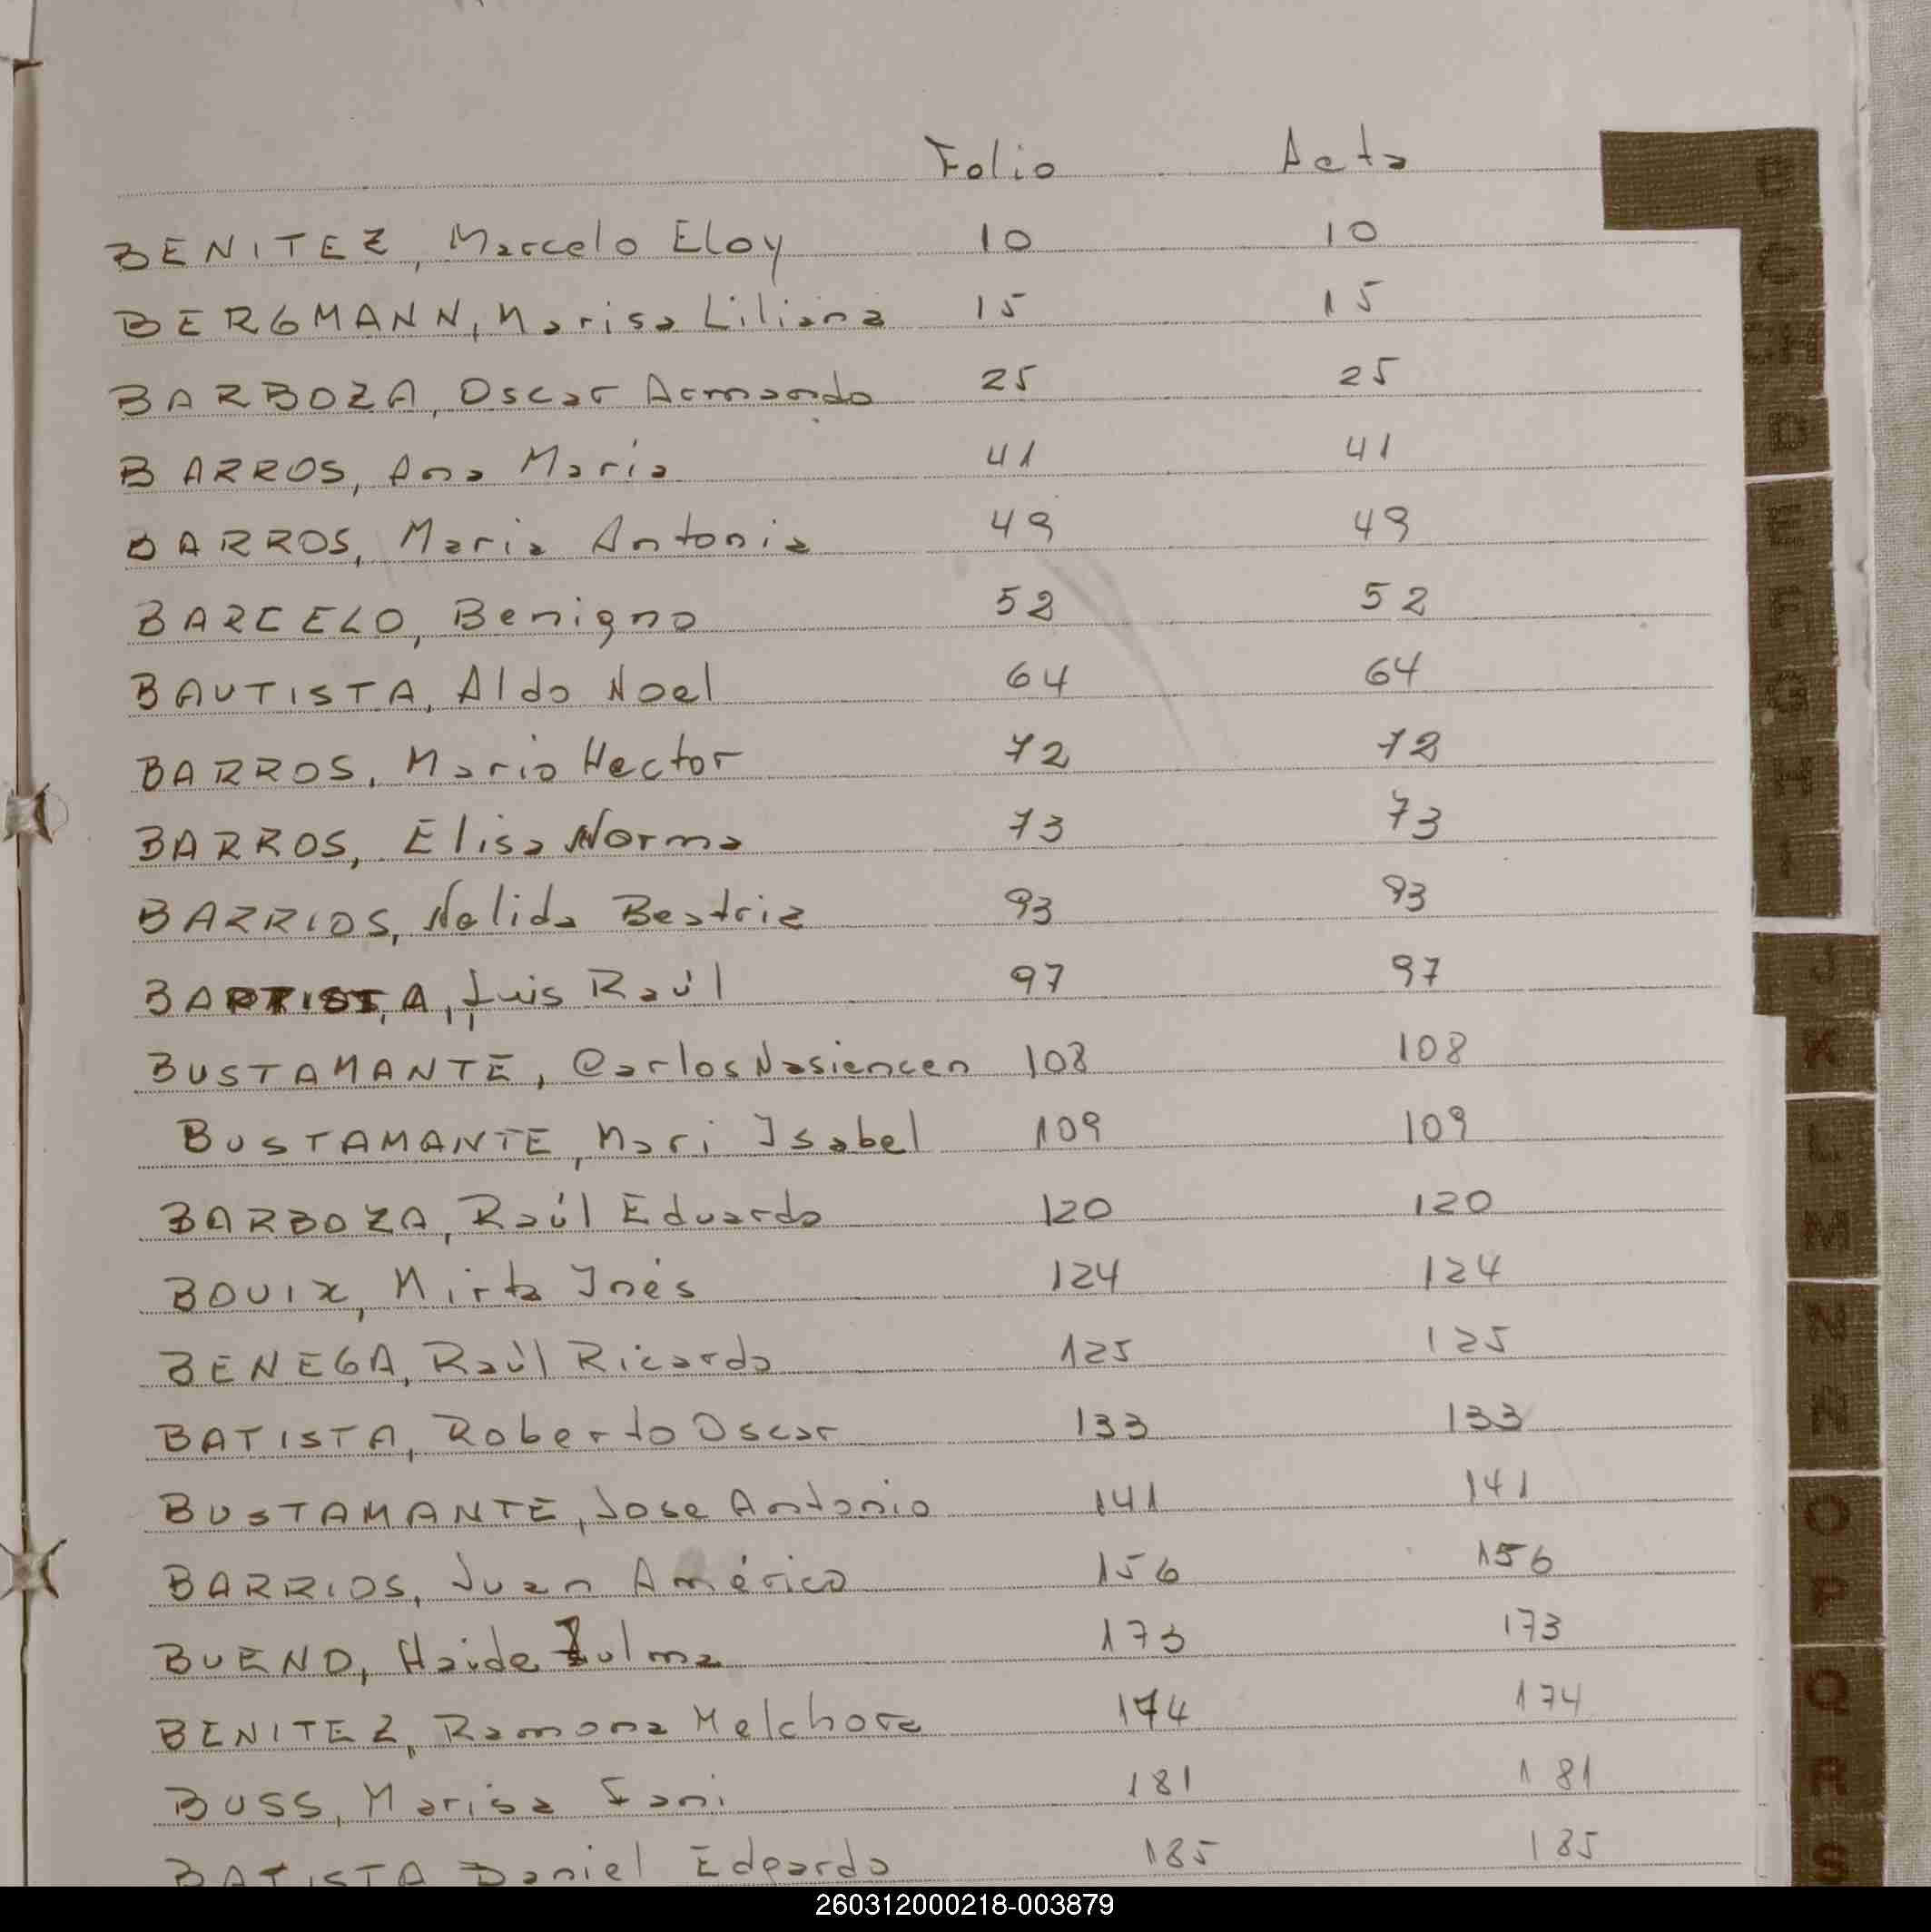 Folio Acta
BENITEZ, Marcelo Eloy 10 10
BERGMANN, Marisa Liliana 15 15
BARBOZA, Oscar Armando 25 25
BARROS, Ana María 41 41
BARROS, Maria Antonia 49 49
BARCELO, Benigno 52 52
BAUTISTA, Aldo Noel 64 64
BARROS, Mario Hector 72 72
BARROS, Elisa Norma 73 73
BARRIOS, Nelida Beatriz 93 93
Luis Raúl 97 97
BUSTAMANTE, Carlos Nasiencen 108 108
BUSTAMANTE, Mari Isabel 109 109
BARBOZA, Raúl Eduardo 120 120
BOUIX, Mirta Inés 124 124
BENEGA, Raúl Ricardo 125 125
BATISTA, Roberto Oscar 133 133
BUSTAMANTE, Jose Antonio 141 141
BARRIOS, Juan Américo 156 156
BUENO, Haide Zulma 173 173
BENITEZ, Ramona Melchora 174 174
BUSS, Marisa Fani 181 181
BATISTA Daniel Edgardo 185 185
C
CH
D
E
F
G
H
I
J
K
L
M
N
Ñ
O
P
Q
R
S
260312000218-003879